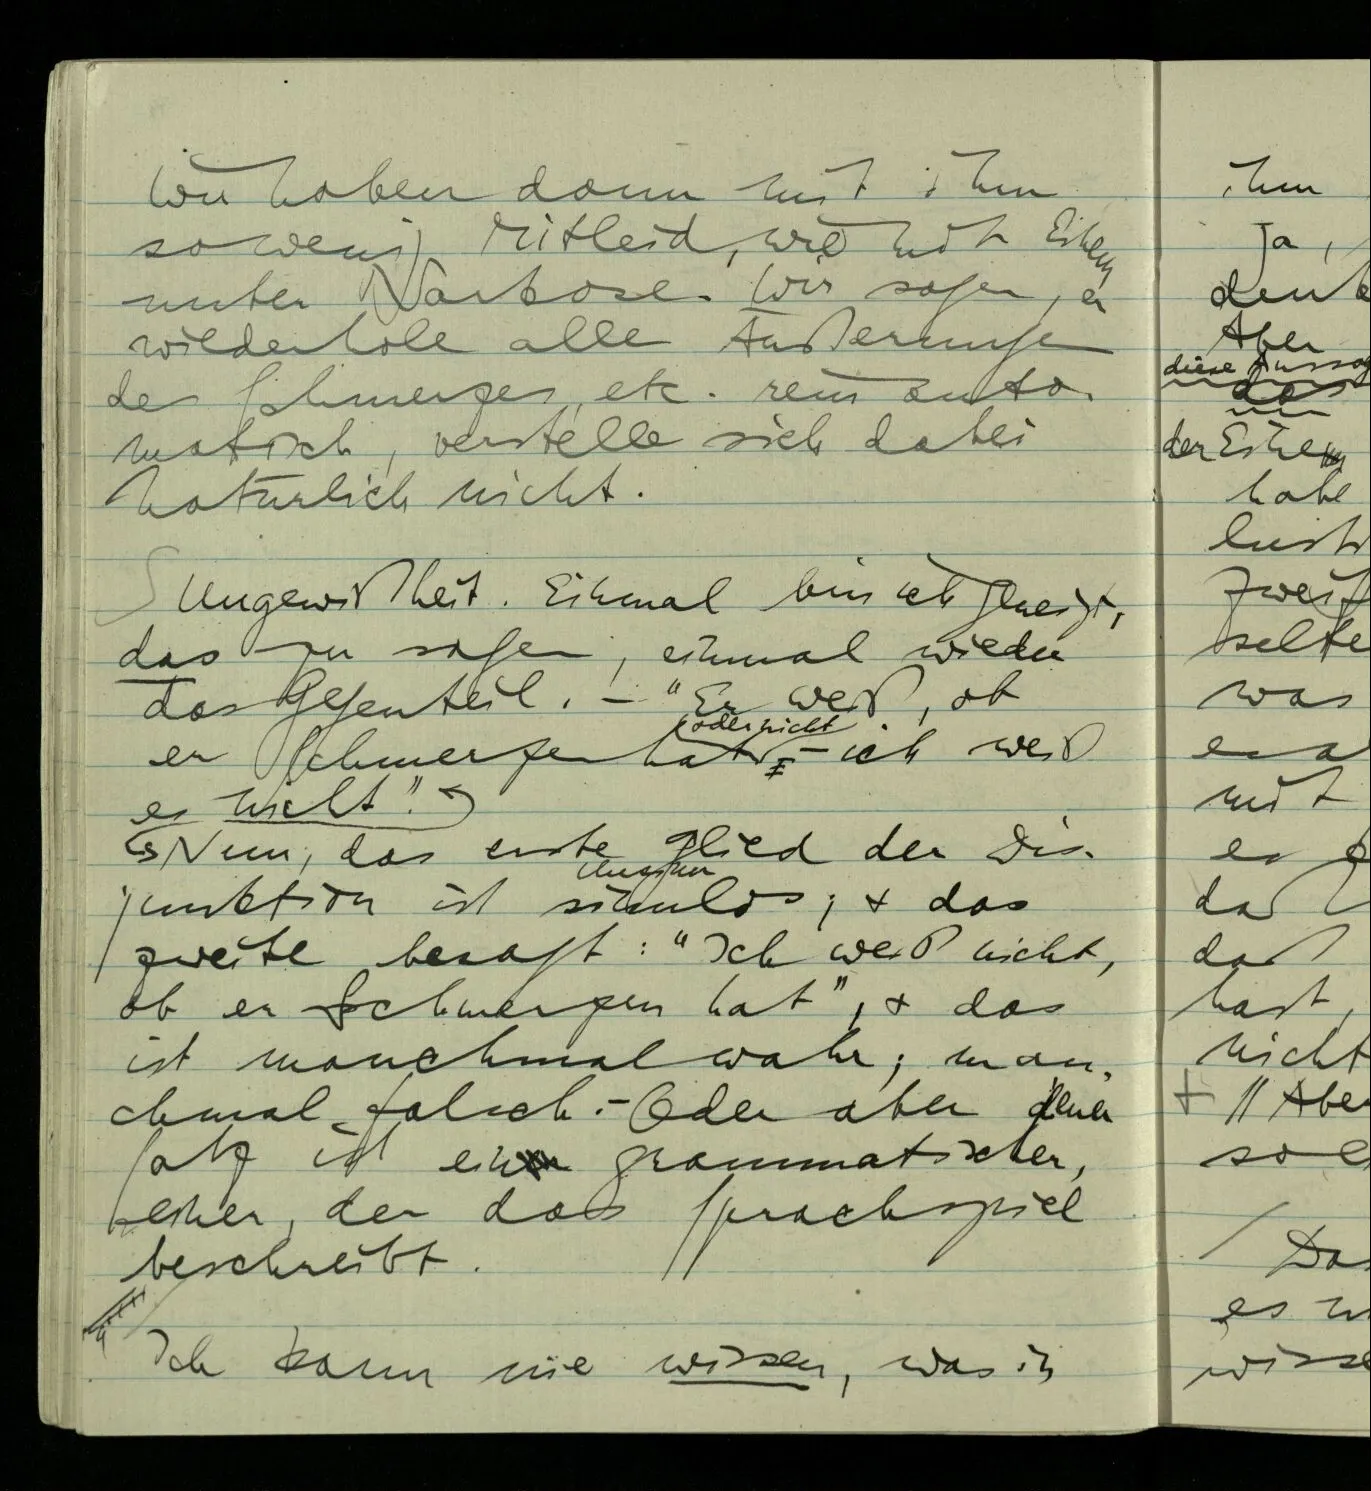 Wir haben dann mit ihm
so wenig Mitleid, wie mit Einem
unter Narkose. Wir sagen, er
wiederhole alle Äußerungen
des Schmerzes, etc. rein auto-
matisch, verstelle sich dabei
natürlich nicht.
S Ungewißheit. Einmal bin ich geneigt,
das zu sagen, einmal wieder
das Gegenteil. – "Er weiß, ob
oder nicht
er Schmerzen hat, – ich weiß
es nicht".
Nun, das erste Glied der Dis-
Unsinn
junktion ist sinnlos; & das
zweite besagt: "Ich weiß nicht,
ob er Schmerzen hat", & das
ist manchmal wahr; man-
chmal falsch. – Oder aber jener
Satz ist ein grammatischer,
einer, der das Sprachspiel
beschreibt.
Ich kann nie wissen, was in
ihm
ja,
denk
Aber
diese Aussag
das
der Eine
habe
lust
zweif
selte
was
er a
mit
es g
daß
daß
hast,
nicht
+ // Aber
so e
/ Das
es w
wisse